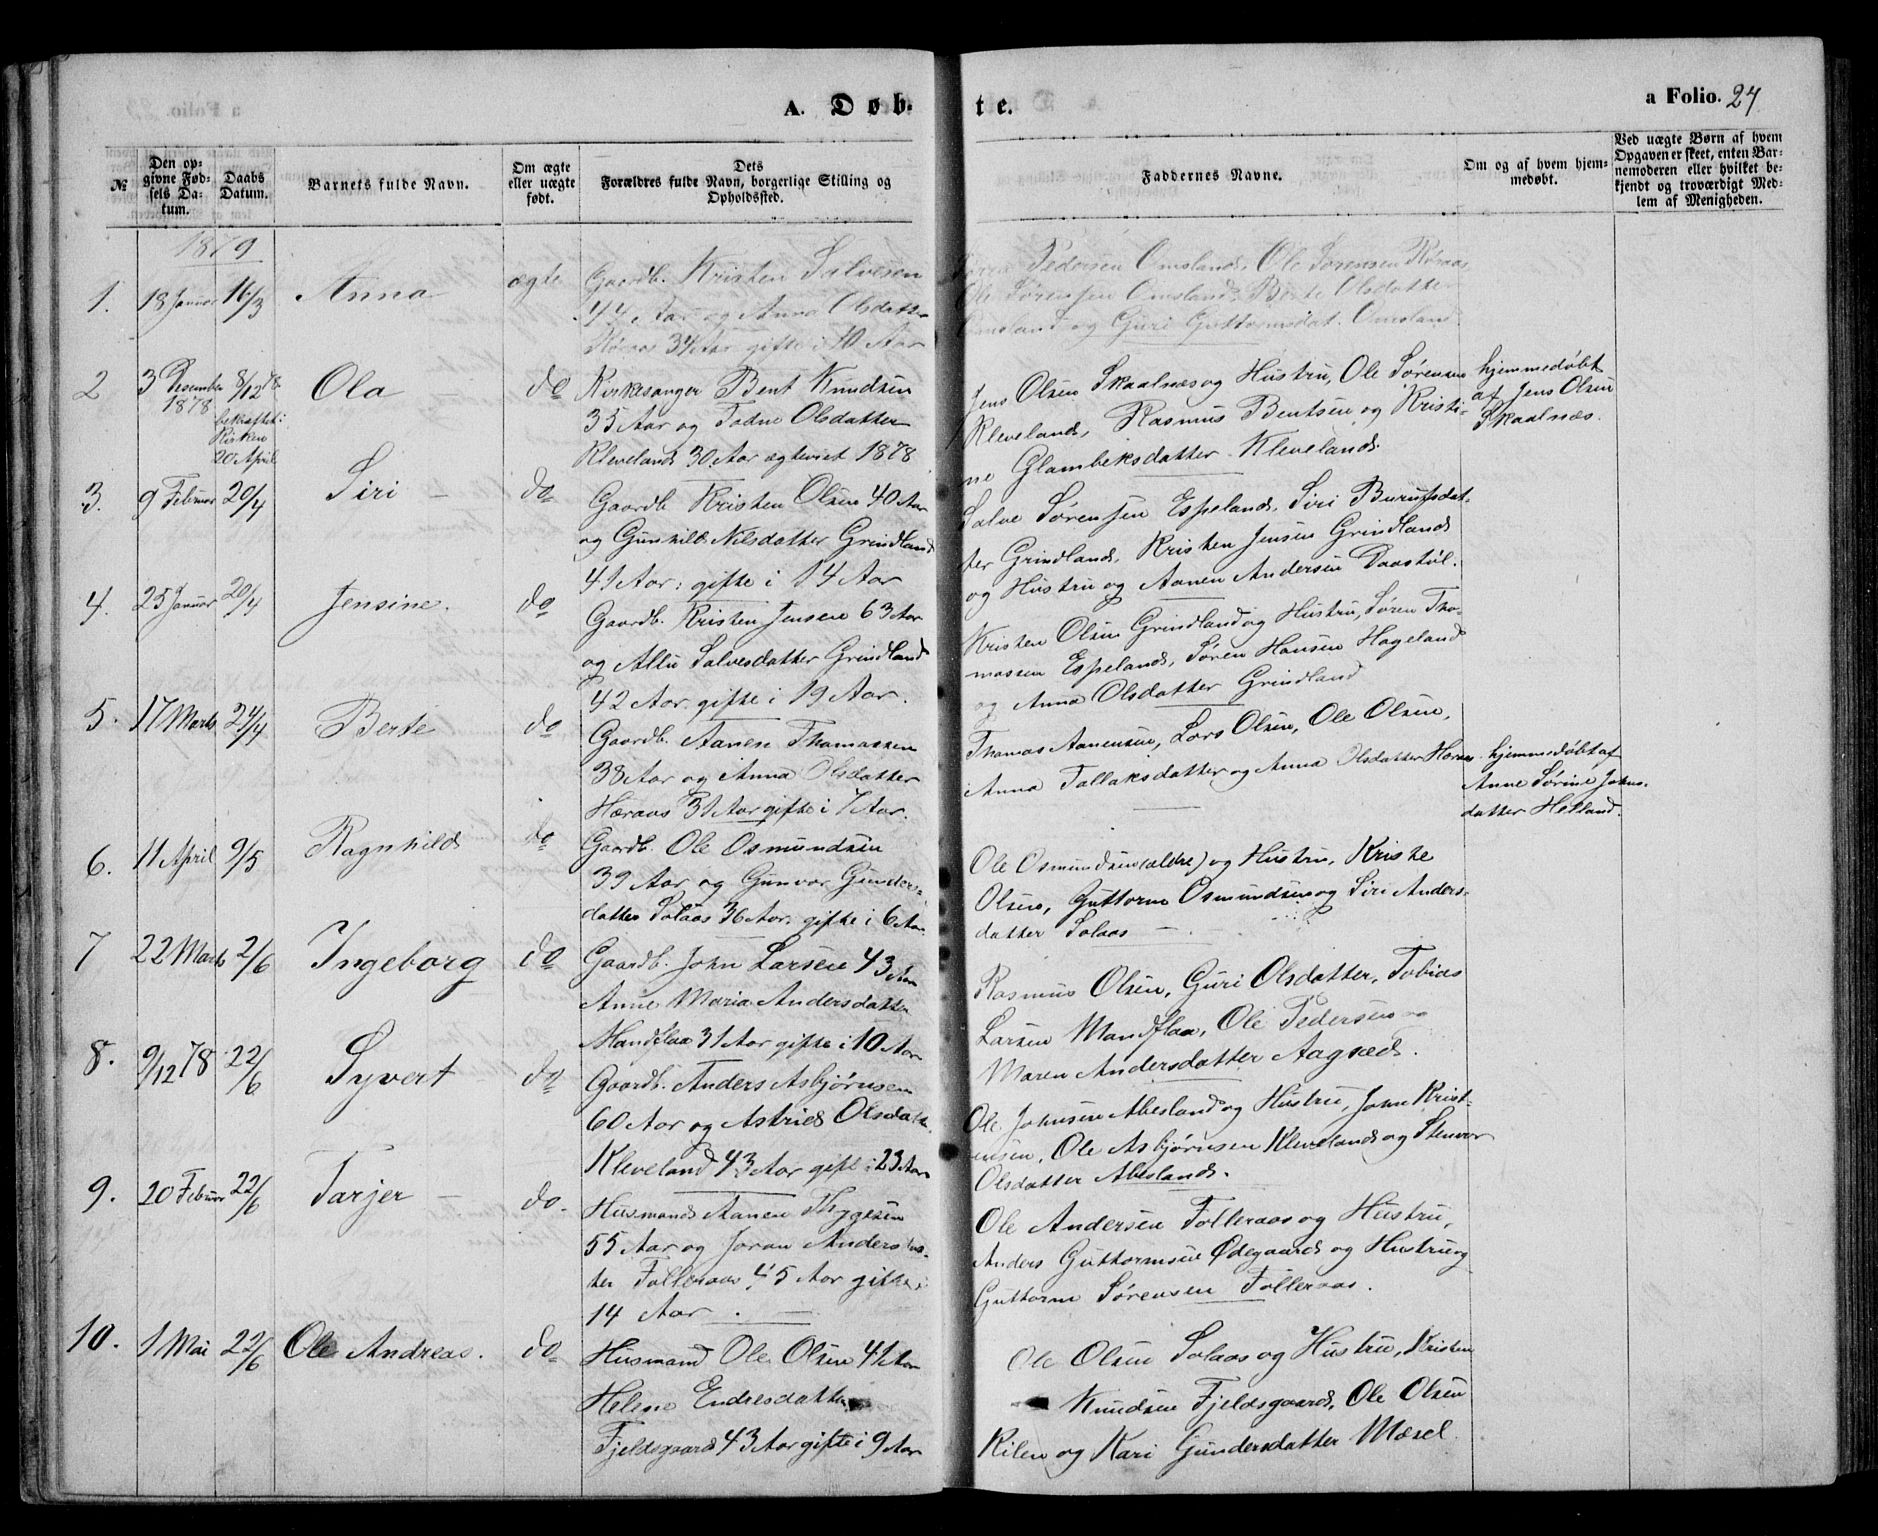 A. Døbte.
a Folio. 24
№
Den opgivne Fødsels Datum.
Daabs Datum.
Barnets fulde Navn.
Om ægte eller uægte født.
Dets Forældres fulde Navn, borgerlige Stilling og Opholdssted.
Faddernes Navne.
Om og af hvem hjemmedøbt.
Ved uægte Børn af hvem Opgaven er skeet, enten Barnemoderen eller hvilket bekjendt og troværdigt Medlem af Menigheden.
1879
1. 18 Januar 16/3 Anna ægte
Gaardb. Kristen Salvesen
44 Aar og Anna Olsdatter
34 Aar gifte i 10 Aar
Pedersen Omsland, Ole Sørensen
Ole Sørensen Omsland, Berte Olsdatter
Omsland og Guri Guttormsdat. Omsland
2 3 Desember 1878 8/12 78 Ola do
bekræftet i
Kirken
20 April
Kirkesanger Bent Knudsen
35 Aar og Todne Olsdatter
Kleveland 30 Aar ægteviet 1878
Jens Olsen Skaalnæs og Hustru, Ole Sørensen
Kleveland, Rasmus Bentsen og Kristi-
ne Glambeksdatter Kleveland.
hjemmedøbt
af Jens Olsen
Skaalnæs.
3. 9 Februar 20/4 Siri do
Gaardb. Kristen Olsen 40 Aar
og Gunhild Nilsdatter Grindland
41 Aar: gifte i 14 Aar
Salve Sørensen Espeland, Siri Burufsdat-
ter Grindland, Kristen Jensen Grindland
og Hustru og Aanen Andersen Daastøl.
4. 25 Januar 20/4 Jensine. do
Gaardb. Kristen Jensen 63 Aar
og Allu Salvesdatter Grindland
42 Aar gifte i 19 Aar.
Kristen Olsen Grindland og Hustru, Søren Tho-
massen Espeland, Søren Hansen Hageland
og Anna Olsdatter Grindland
5. 17 Marts 24/4 Berte do
Gaardb. Aanen Thomassen
38 Aar og Anna Olsdatter
Høraas 31 Aar gifte i 7 Aar.
Thomas Aanensen, Lars Olsen, Ole Olsen,
Anna Tallaksdatter og Anna Olsdatter Høraas
hjemmedøbt af
Anne Sørine Johns-
datter Helland.
6. 11 April 9/5 Ragnhild do
Gaardb. Ole Osmundsen
39 Aar og Gunvor Gunders-
datter Solaas 36 Aar. gifte i 6 Aar
Ole Osmundsen (ældre) og Hustru, Kriste
Olsen, Guttorm Osmundsen og Siri Anders-
datter Solaas
7 22 Marts 2/6 Ingeborg do
Gaardb. John Larsen 43 Aar
Anne Maria Andersdatter
Mandflaa 31 Aar gifte i 10 Aar
Rasmus Olsen, Guri Olsdatter, Tobias
Larsen Mandflaa, Ole Pedersen og
Maren Andersdatter Aagsæd.
8. 9/12 78 22/6 Syvert do
Gaardb. Anders Asbjørnsen
60 Aar og Astried Olsdatter
Kleveland 43 Aar gift i 23 Aar
Ole Johnsen Abesland og Hustru, John Krist-
ensen, Ole Asbjørnsen Kleveland og Stenvor
Olsdatter Abesland.
9. 20 Februar 22/6 Tarjer do.
Husmand Aanen Thygesen
55 Aar og Joran Andersdat-
ter Folleraas 45 Aar gifte i
14 Aar
Ole Andersen Folleraas og Hustru,
Anders Guttormsen Ødegaard og Hustru og
Guttorm Sørensen Folleraas.
10. 1 Mai 22/6 Ole Andreas. do
Husmand Ole Olsen 41 Aar
Helene Endresdatter
Fjeldsgaard 43 Aar gifte i 9 Aar
Ole Olsen Solaas og Hustru, Kristen
Knudsen Fjeldsgaard, Ole Olsen
Kilen og Kari Gundersdatter Mæsel.